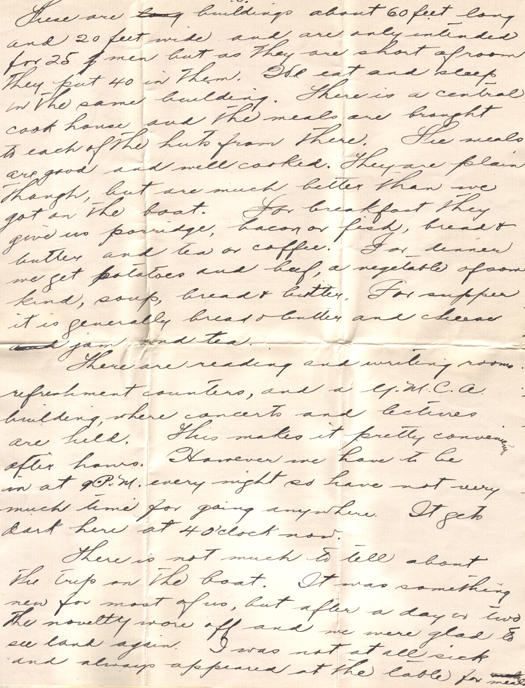 These are long buildings about 60 feet long
and 20 feet wide and are only intended
for 25 men but as they are short of room
they put 40 in them. We eat and sleep
in the same building. There is a central
cook house and the meals are brought
to each of the huts from there. The meals
are good and well cooked. They are plain
though, but are much better than we
got on the boat. For breakfast they
give us porridge, bacon or fish, bread &
butter and tea or coffee. For dinner
we get potatoes and beef, a vegetable of some
kind, soup, bread & butter. For supper
it is generally bread & butter and cheese
and jam, and tea.
There are reading and writing rooms
refreshment counters, and a Y.M.C.A.
building, where concerts and lectures
are held. This makes it pretty convenient
after hours. However we have to be
in at 9 P.M. every night so have not very
much time for going anywhere. It gets
dark here at 4 O'clock now.
There is not much to tell about
the trip on the boat. It was something
new for most of us, but after a day or two
the novelty wore off and we were glad to
see land again. I was not at all sick
and always appeared at the table for meals